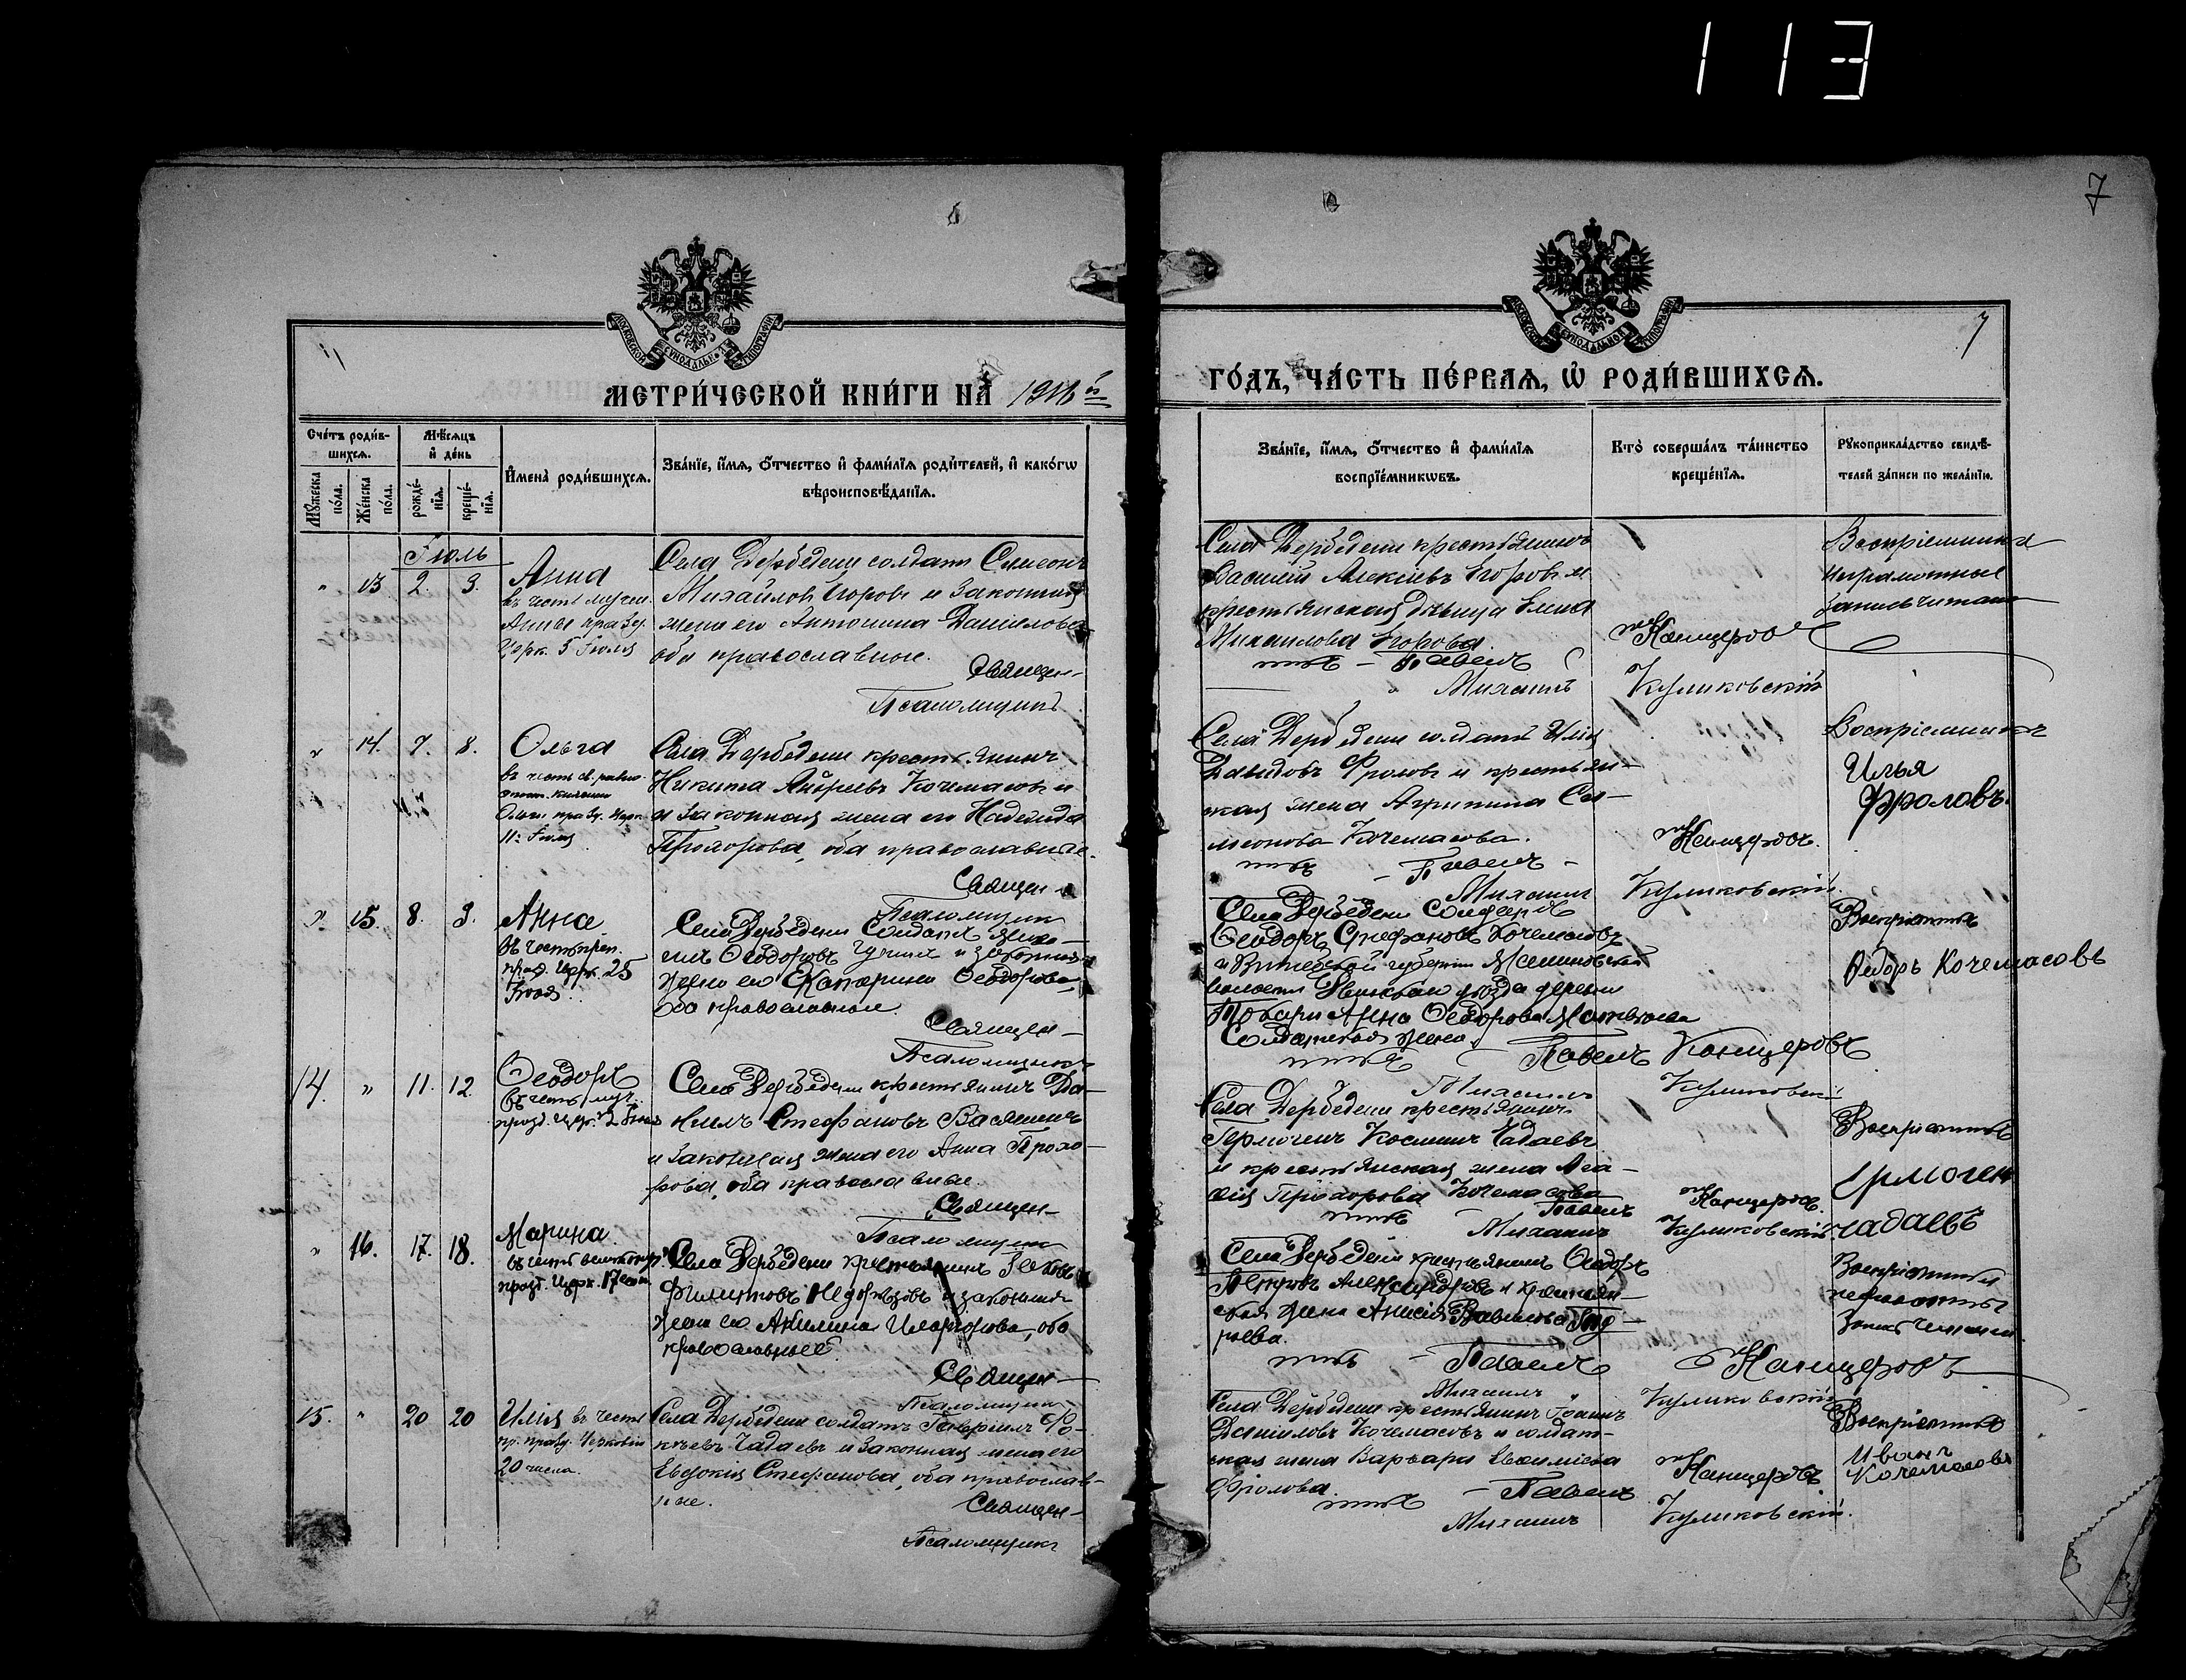 113
7
7
МОСКОВСКОЙ СУНОДАЛЬНОЙ ТИПОГРАФІИ
МЕТРИ́ЧЕСКОЙ КНИ́ГИ НА́
МОСКОВСКОЙ СУНОДАЛЬНОЙ ТИПОГРАФІИ
ГО́ДЪ, ЧА́СТЬ ПЕ́РВАЯ, Ѡ҆ РОДИ́ВШИХСЯ.
Сче́тъ роди́в-
шихся.
Мѣ́сяцъ
и҆ де́нь
Мꙋ́жеска по́ла.
Же́нска по́ла.
рожде́-
нїя.
креще́-
нїя.
И҆мена̀ роди́вшихся.
Зва́нїе, и҆́мя, ѻ҆́тчество и҆ фамї́лїя роди́телей, и҆ како́гѡ
вѣроисповѣ́данїя.
Зва́нїе, и҆́мя, ѻ҆́тчество и҆ фамї́лїя
воспрїе́мникѡвъ.
Кто̀ соверша́лъ та́инство
креще́нїя.
Рꙋкоприкла́дство свидѣ́-
телей за́писи по жела́нїю.
Іюль
" 13 2. 3. Анна
въ честь мучен.
Анны празд.
Церк. 5 Іюля
Села Дербедени солдатъ Симеонъ
Михайловъ Егоровъ и законная
жена его Антонина Даніилова
оба православные.
Священ-
Псаломщикъ
Села Дербедени крестьянинъ
Василій Алексіевъ Егоровъ и
крестьянская дѣвица Елена
Михаилова Егорова.
никъ - Павелъ Канцеровъ
Михаилъ Куликовскій
Воспріемники
неграмотные
запись читана
" 14. 7. 8. Ольга
въ честь св. равно-
апост. княгини
Ольги празд. Церк.
11 Іюля
Села Дербедени крестьянинъ
Никита Андреевъ Кочемасовъ и
и законная жена его Надежда
Прохорова, оба православные.
Священ-
Псаломщикъ
Села Дербедени солдатъ Илія
Давидовъ Фроловъ и крестьян-
ская жена Агрипина Си-
меонова Кочемасова.
никъ - Павелъ Канцеровъ.
Михаилъ Куликовскій.
Воспріемникъ
Илья
Фроловъ.
" 15. 8. 9. Анна
въ честь прп.
празд. Церк. 25
Іюля.
Села Дербедени Солдатъ
Ѳеодоровъ и законная
жена его Екатерина Ѳеодорова,
оба православные.
Священ-
Псаломщикъ
Села Дербедени
Ѳеодоръ Стефановъ Кочемасовъ
и Витебской губерніи
волости уѣзда деревни
Анна Ѳеодорова Матвѣева
Солдатская жена.
никъ - Павелъ Канцеровъ
Михаилъ Куликовскій
Воспріемникъ
Ѳедоръ Кочемасовъ
14. " 11. 12. Ѳеодоръ
въ честь муч.
празд. Церк. 12 Іюля
Села Дербедени крестьянинъ Да-
ніилъ Стефановъ Васянинъ
и законная жена его Анна Прохо-
рова, оба православные.
Священ-
Псаломщикъ
Села Дербедени крестьянинъ
Гермогенъ Косминъ Чадаевъ
и крестьянская жена Ага-
ѳія Прохорова Кочемасова
никъ Павелъ Канцеровъ.
Михаилъ Куликовскій
Воспріемникъ
Ермоген
чадаевъ
" 16. 17. 18. Марина
въ честь великомуч.
празд. Церк. 17 сего м.
Села Дербедени крестьянинъ
Филиповъ и законная
жена его Акилина Иларіонова, оба
православные.
Священ-
Псаломщикъ
Села Дербедени крестьянинъ Ѳеодоръ
Петровъ Александровъ и крестьян-
ская жена Анисія Вавилова
никъ - Павелъ Канцеровъ
Михаилъ Куликовскій
Воспріемники
неграмотны
запись читана.
15. " 20 20 Илія въ честь
пр. празд. Церковію
20 числа.
Села Дербедени солдатъ Гавріилъ Фо-
кѣевъ Чадаевъ и законная жена его
Евдокія Стефанова, оба православ-
ные.
Священ-
Псаломщикъ
Села Дербедени крестьянинъ Іоаннъ
Даніиловъ Кочемасовъ и солдат-
ская жена Варвара Евѳиміева
Фролова.
никъ - Павелъ Канцеровъ
Михаилъ Куликовскій.
Воспріемникъ
Иванъ
Кочемасовъ